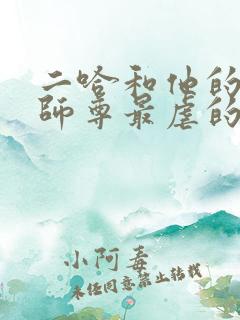 二哈和他的
師尊最虐的
小阿毒
未经同意禁止转载